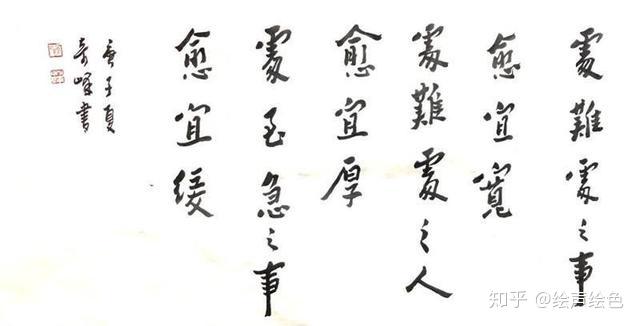 處難處之事
愈宜寬
處難處之人
愈宜厚
處至急之事
愈宜緩
庚子夏
奇峰書
知乎 @绘声绘色